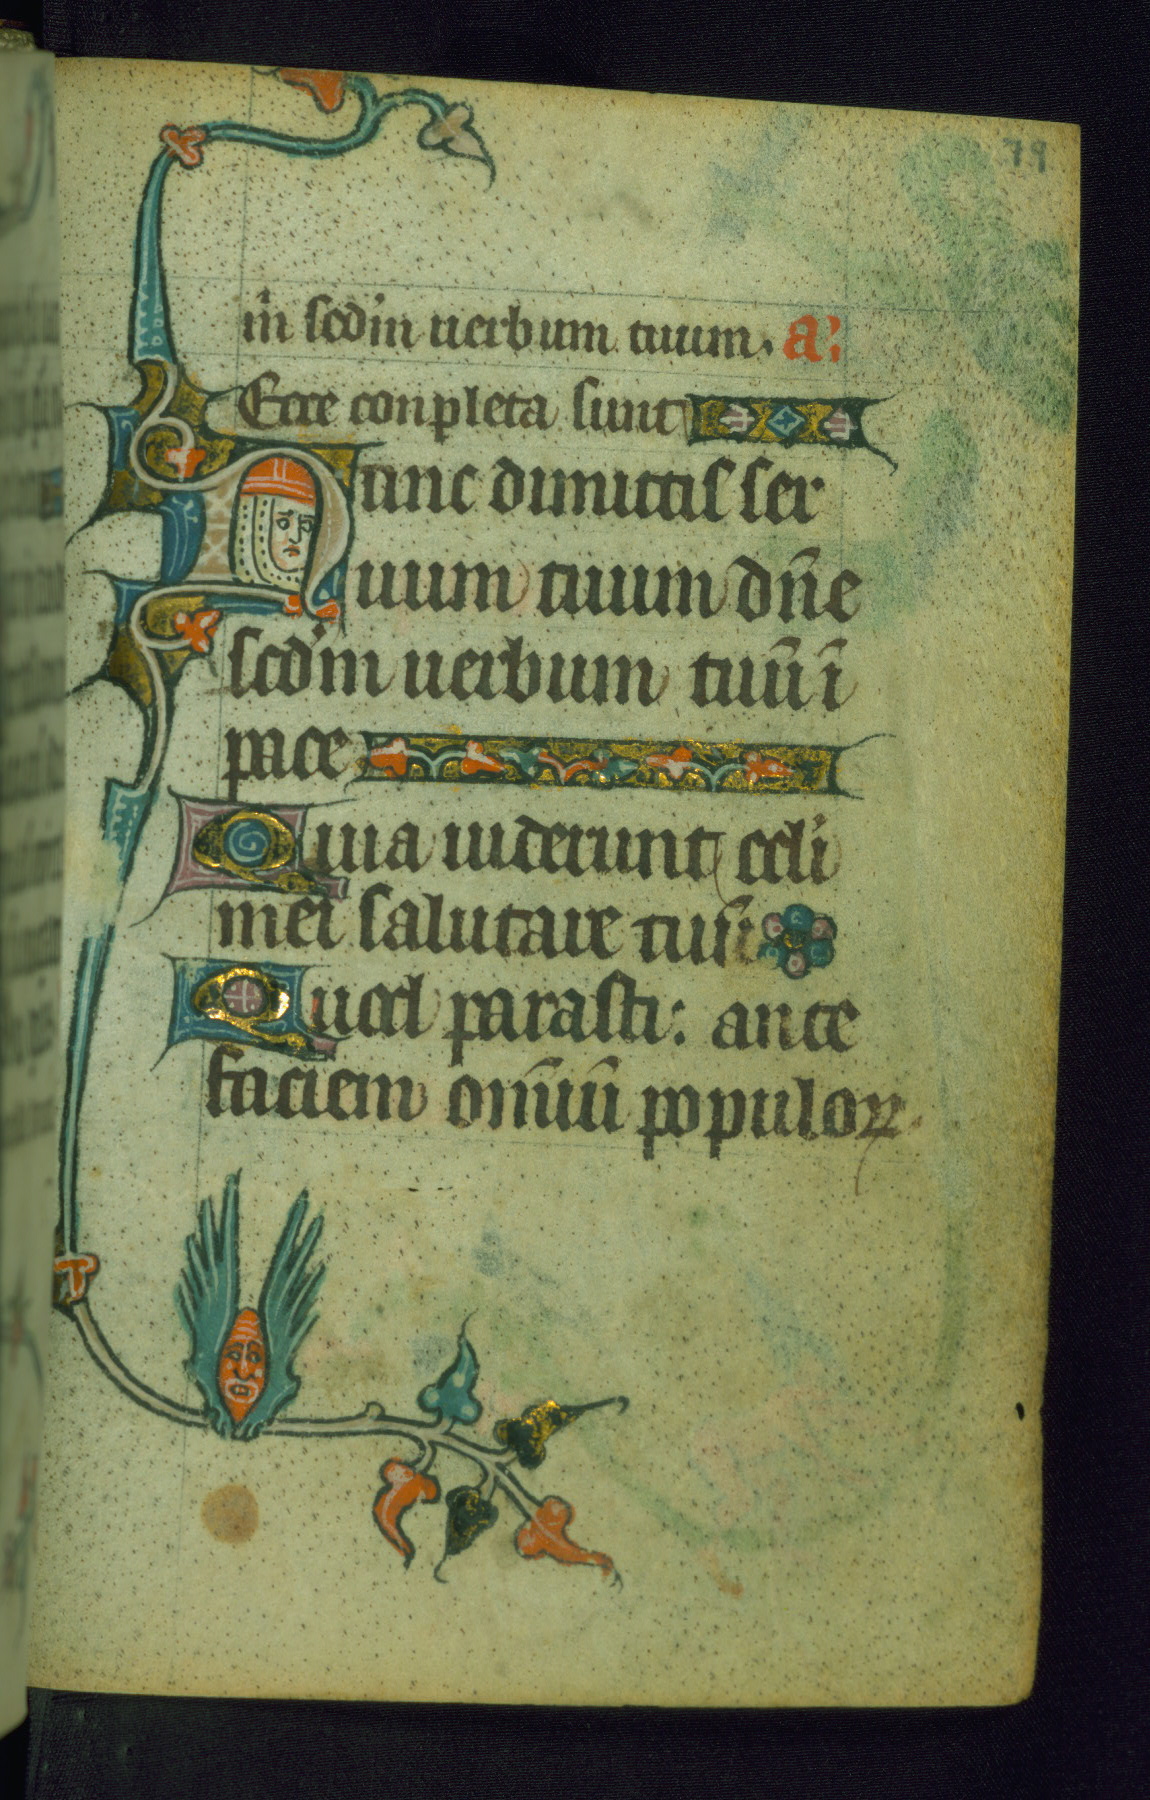 79
in scdm uerbum tuum. a:
Ecce conpleta sunt
Nunc dimittis ser
uum tuum dn̄e
scdm uerbum tuū ī
pace
Quia uiderunt ocli
mei salutare tuū
Quod parasti: ante
faciem omīuū populoꝝ